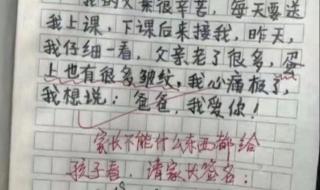 我的父亲很辛苦，每天要送
我上课，下课后来接我，昨天，
我仔细一看，父亲老了很多，脸
上也有很多皱纹，我心痛极了，
我想说：爸爸，我爱你！
家长不能什么东西都给
孩子看，请家长签名：